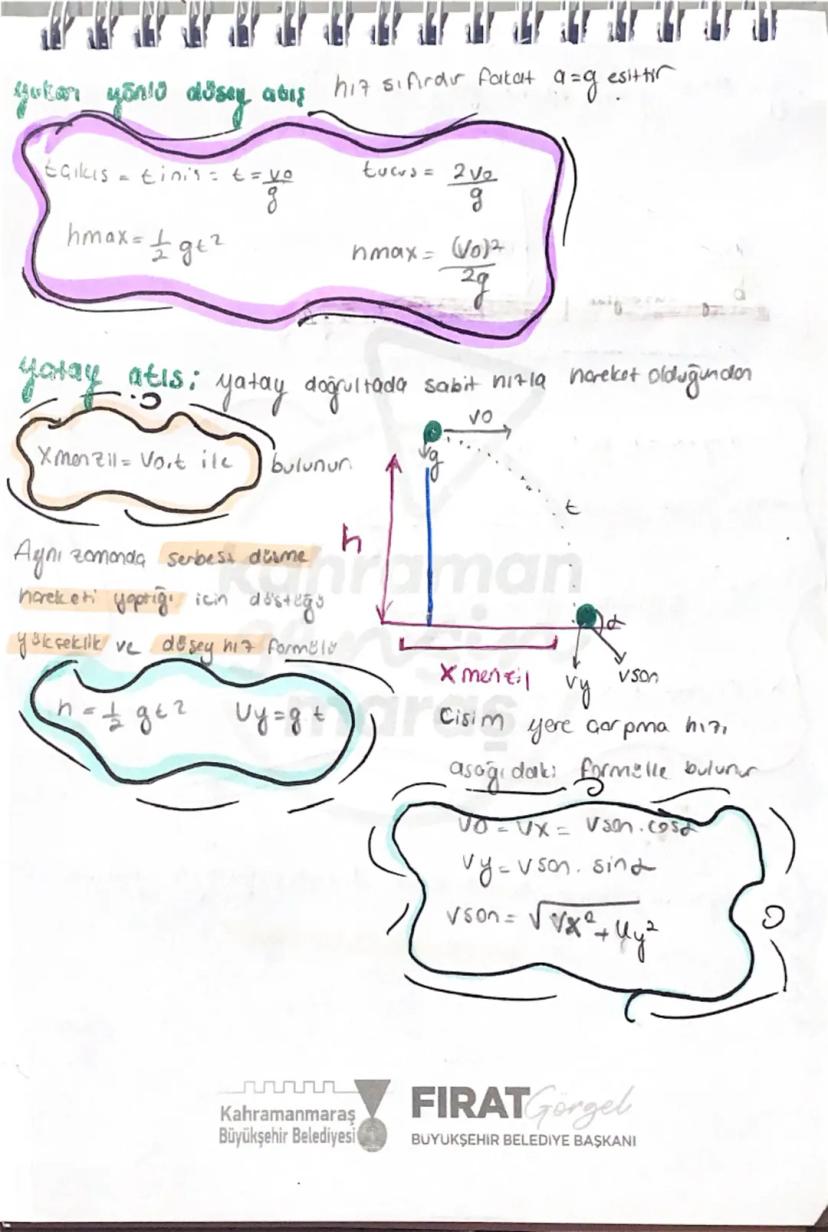 yukarı yönlü düşey atış hız sıfırdır fakat a=g eşittir
tçıkış = tiniş = t = v0/g
tuçuş = 2v0/g
hmax = 1/2 gt²
hmax = (v0)²/2g
yatay atış: yatay doğrultuda sabit hızla hareket olduğundan
Xmenzil = V0.t ile bulunur
v0
g
t
h
α
X menzil
vy
vson
Aynı zamanda serbest düşme
hareketi yaptığı için düştüğü
yükseklik ve düşey hız formülü
h = 1/2 gt² Vy = gt
Cisim yere çarpma hızı
aşağıdaki formülle bulunur
V0 = Vx = Vson.cosα
Vy = Vson.sinα
Vson = √Vx² + Vy²
kahraman
gençlik
maraş
Kahramanmaraş
Büyükşehir Belediyesi
FIRAT Görgel
BÜYÜKŞEHİR BELEDİYE BAŞKANI